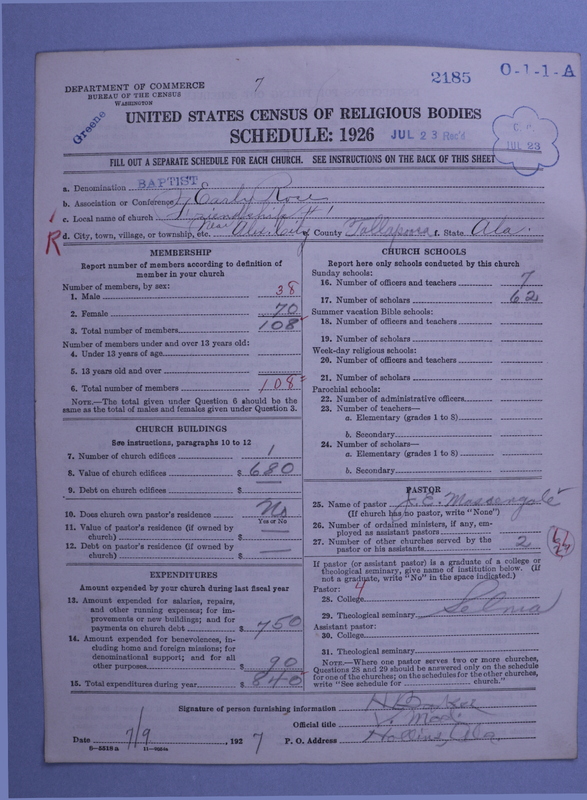 7
2185 O-1-1-A
DEPARTMENT OF COMMERCE
BUREAU OF THE CENSUS
WASHINGTON
Greene
UNITED STATES CENSUS OF RELIGIOUS BODIES
SCHEDULE: 1926 JUL 23 Rec'd
JUL 23
FILL OUT A SEPARATE SCHEDULE FOR EACH CHURCH. SEE INSTRUCTIONS ON THE BACK OF THIS SHEET
a. Denomination BAPTIST
b. Association or Conference Early Rose
c. Local name of church Friendship #1
R d. City, town, village, or township, etc. near Alex. City County Tallapoosa f. State Ala.
MEMBERSHIP
Report number of members according to definition of
member in your church
Number of members, by sex:
1. Male 38
2. Female 70
3. Total number of members 108
Number of members under and over 13 years old:
4. Under 13 years of age
5. 13 years old and over
6. Total number of members 108
NOTE.—The total given under Question 6 should be the
same as the total of males and females given under Question 3.
CHURCH BUILDINGS
See instructions, paragraphs 10 to 12
7. Number of church edifices 1
8. Value of church edifices $ 680
9. Debt on church edifices $ —
10. Does church own pastor's residence No
Yes or No
11. Value of pastor's residence (if owned by
church) $ —
12. Debt on pastor's residence (if owned by
church) $ —
EXPENDITURES
Amount expended by your church during last fiscal year
13. Amount expended for salaries, repairs,
and other running expenses; for im-
provements or new buildings; and for
payments on church debt $ 750
14. Amount expended for benevolences, in-
cluding home and foreign missions; for
denominational support; and for all
other purposes $ 90
15. Total expenditures during year $ 840
CHURCH SCHOOLS
Report here only schools conducted by this church
Sunday schools:
16. Number of officers and teachers 7
17. Number of scholars 62
Summer vacation Bible schools:
18. Number of officers and teachers
19. Number of scholars
Week-day religious schools:
20. Number of officers and teachers
21. Number of scholars
Parochial schools:
22. Number of administrative officers
23. Number of teachers—
a. Elementary (grades 1 to 8)
b. Secondary
24. Number of scholars—
a. Elementary (grades 1 to 8)
b. Secondary
PASTOR
25. Name of pastor E. Massengale
(If church has no pastor, write "None")
26. Number of ordained ministers, if any, em-
ployed as assistant pastors
27. Number of other churches served by the
pastor or his assistants 2
If pastor (or assistant pastor) is a graduate of a college or
theological seminary, give name of institution below. (If
not a graduate, write "No" in the space indicated.)
Pastor: 4
28. College
29. Theological seminary Selma
Assistant pastor:
30. College
31. Theological seminary
NOTE.—Where one pastor serves two or more churches,
Questions 28 and 29 should be answered only on the schedule
for one of the churches; on the schedules for the other churches,
write "See schedule for church."
Signature of person furnishing information
Official title Mod.
Date 7/9, 1927 P. O. Address Hollins, Ala.
8-5518 a